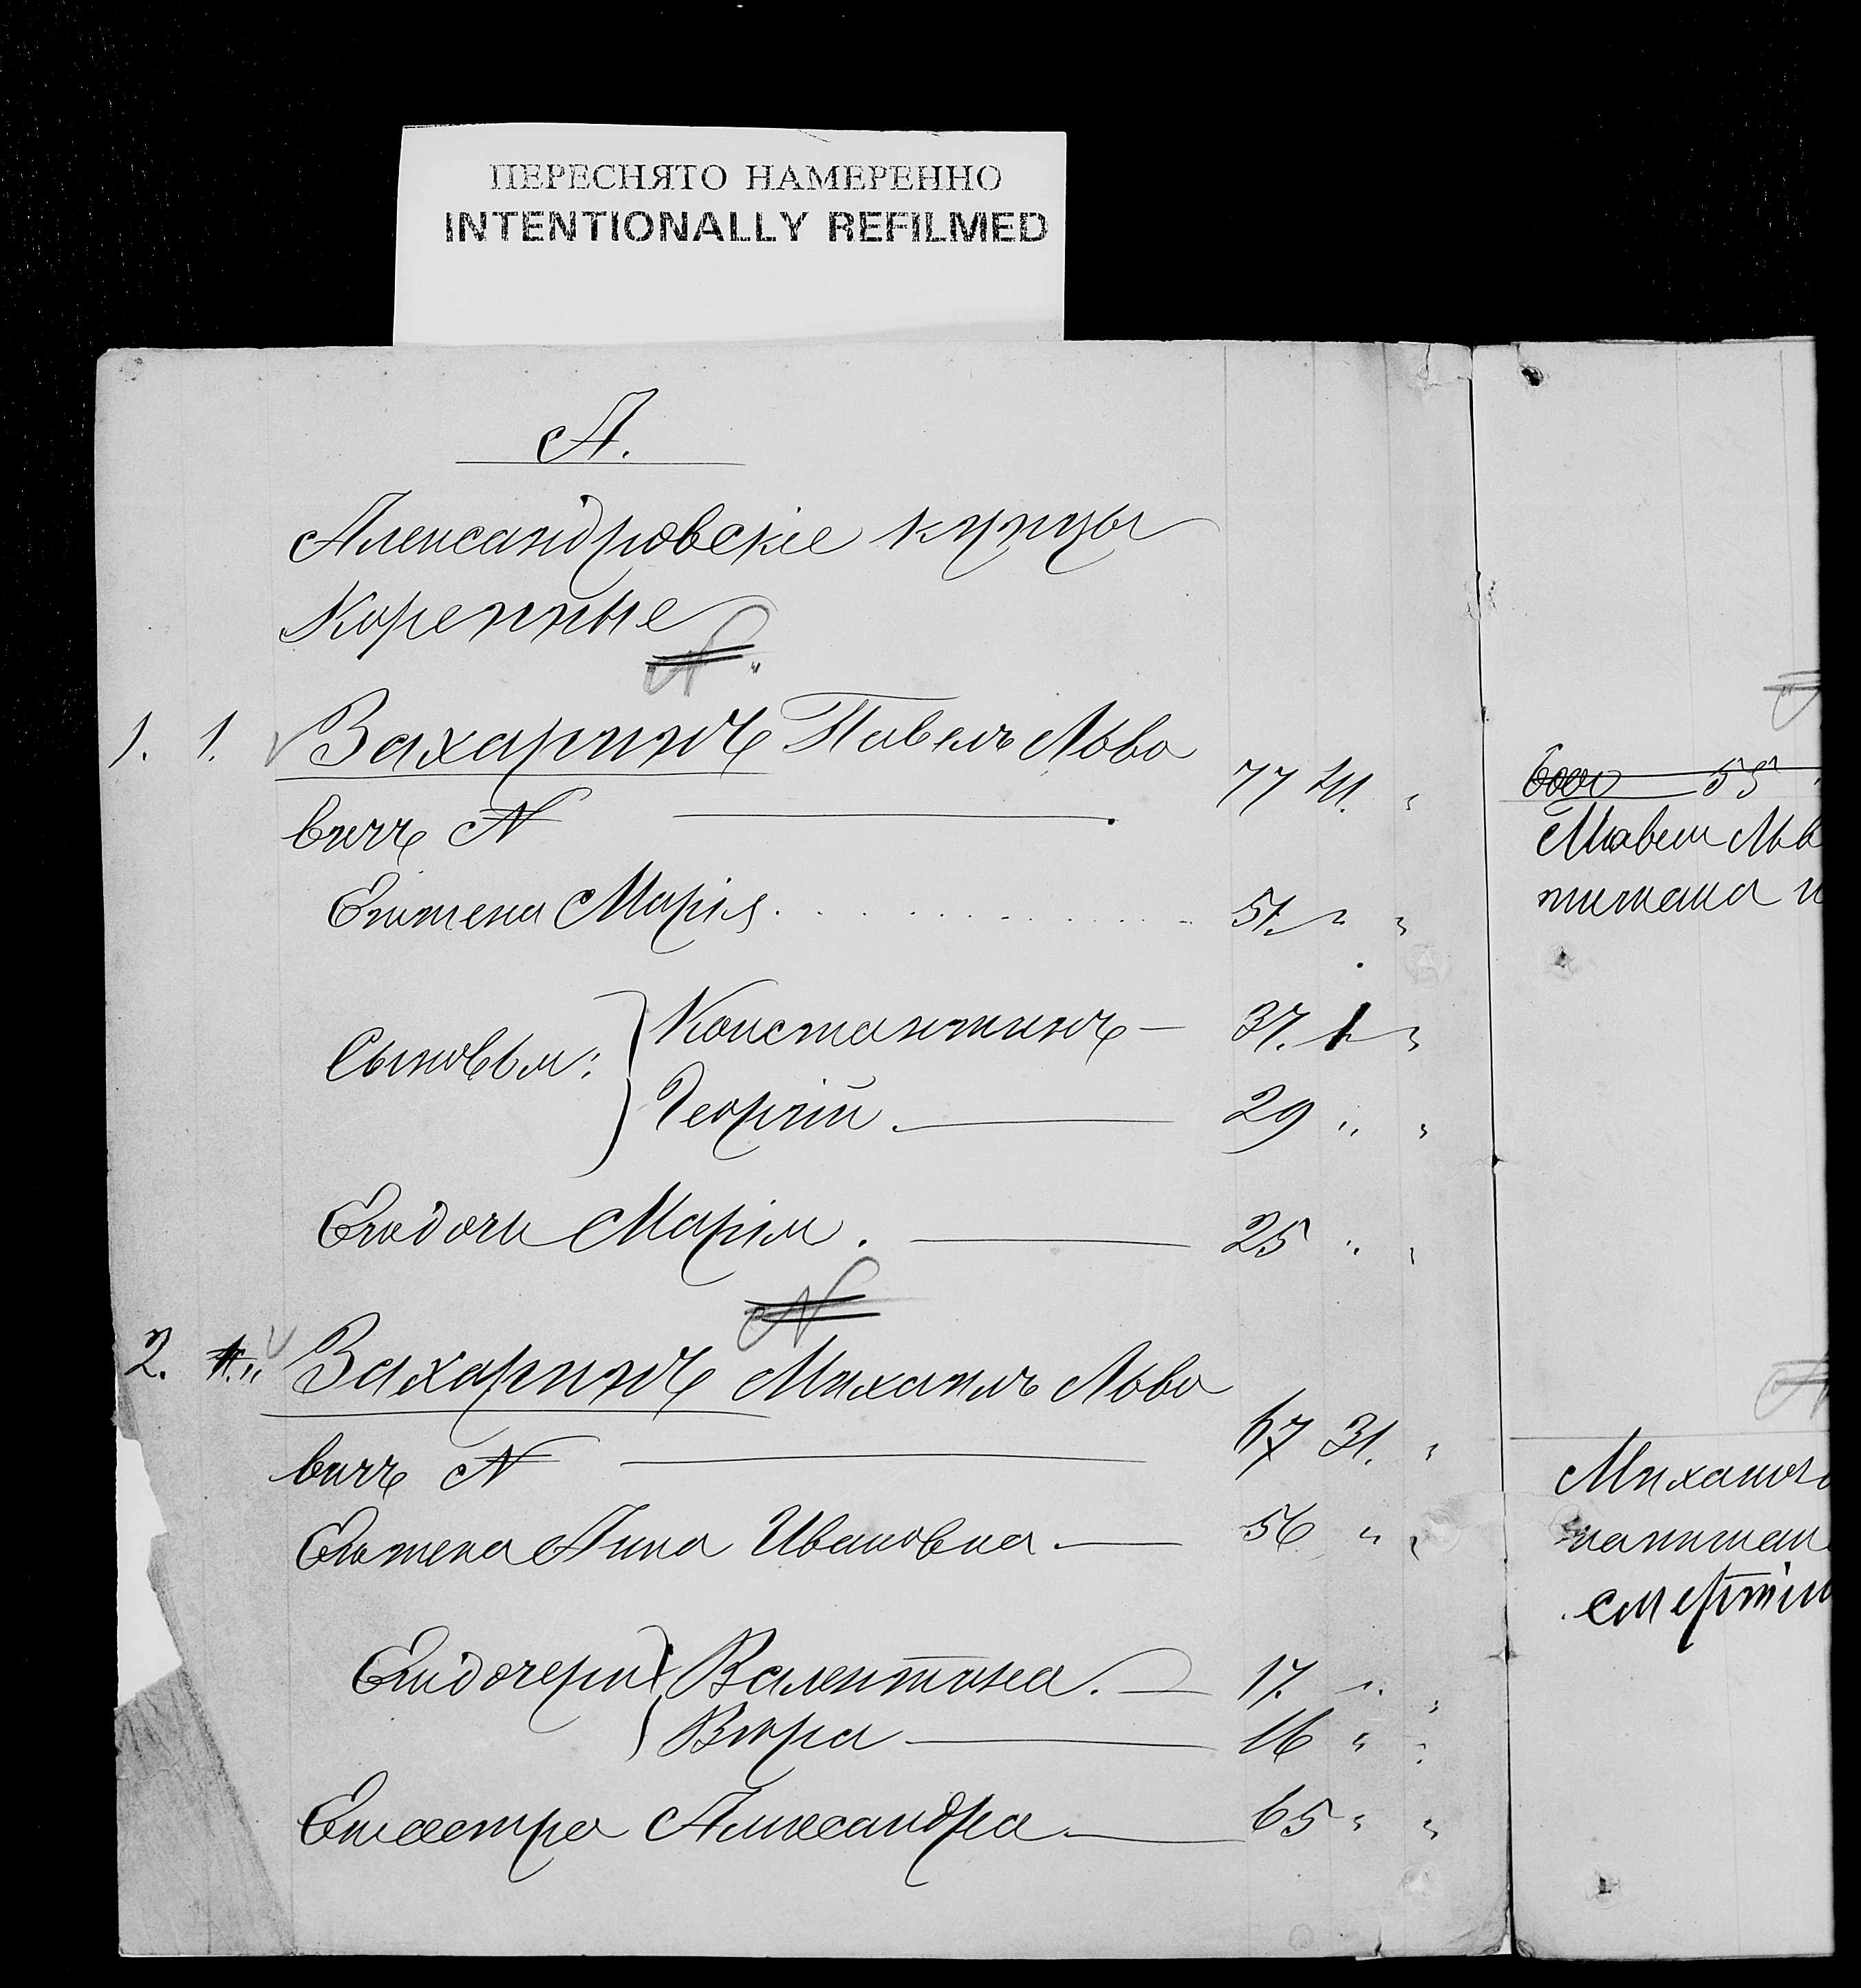 ПЕРЕСНЯТО НАМЕРЕННО
INTENTIONALLY REFILMED
А.
Александровскіе купцы
Коренные
N
1. 1. Захаринъ Павелъ Льво
вичъ N 77 31. "
Его жена Марія 51. " "
Сыновья: Константинъ 37. " "
Георгій. 29 " "
Его дочь Марія. 25 " "
N
2. Захаринъ Михаилъ Льво
вичъ N 67 31. "
Его жена Анна Ивановна 56 " "
Его дочери Валентина. 17. " "
Вѣра 16 " "
Его сестра Александра 65 " "
55
Павелъ Льв
Михаилъ
смертію